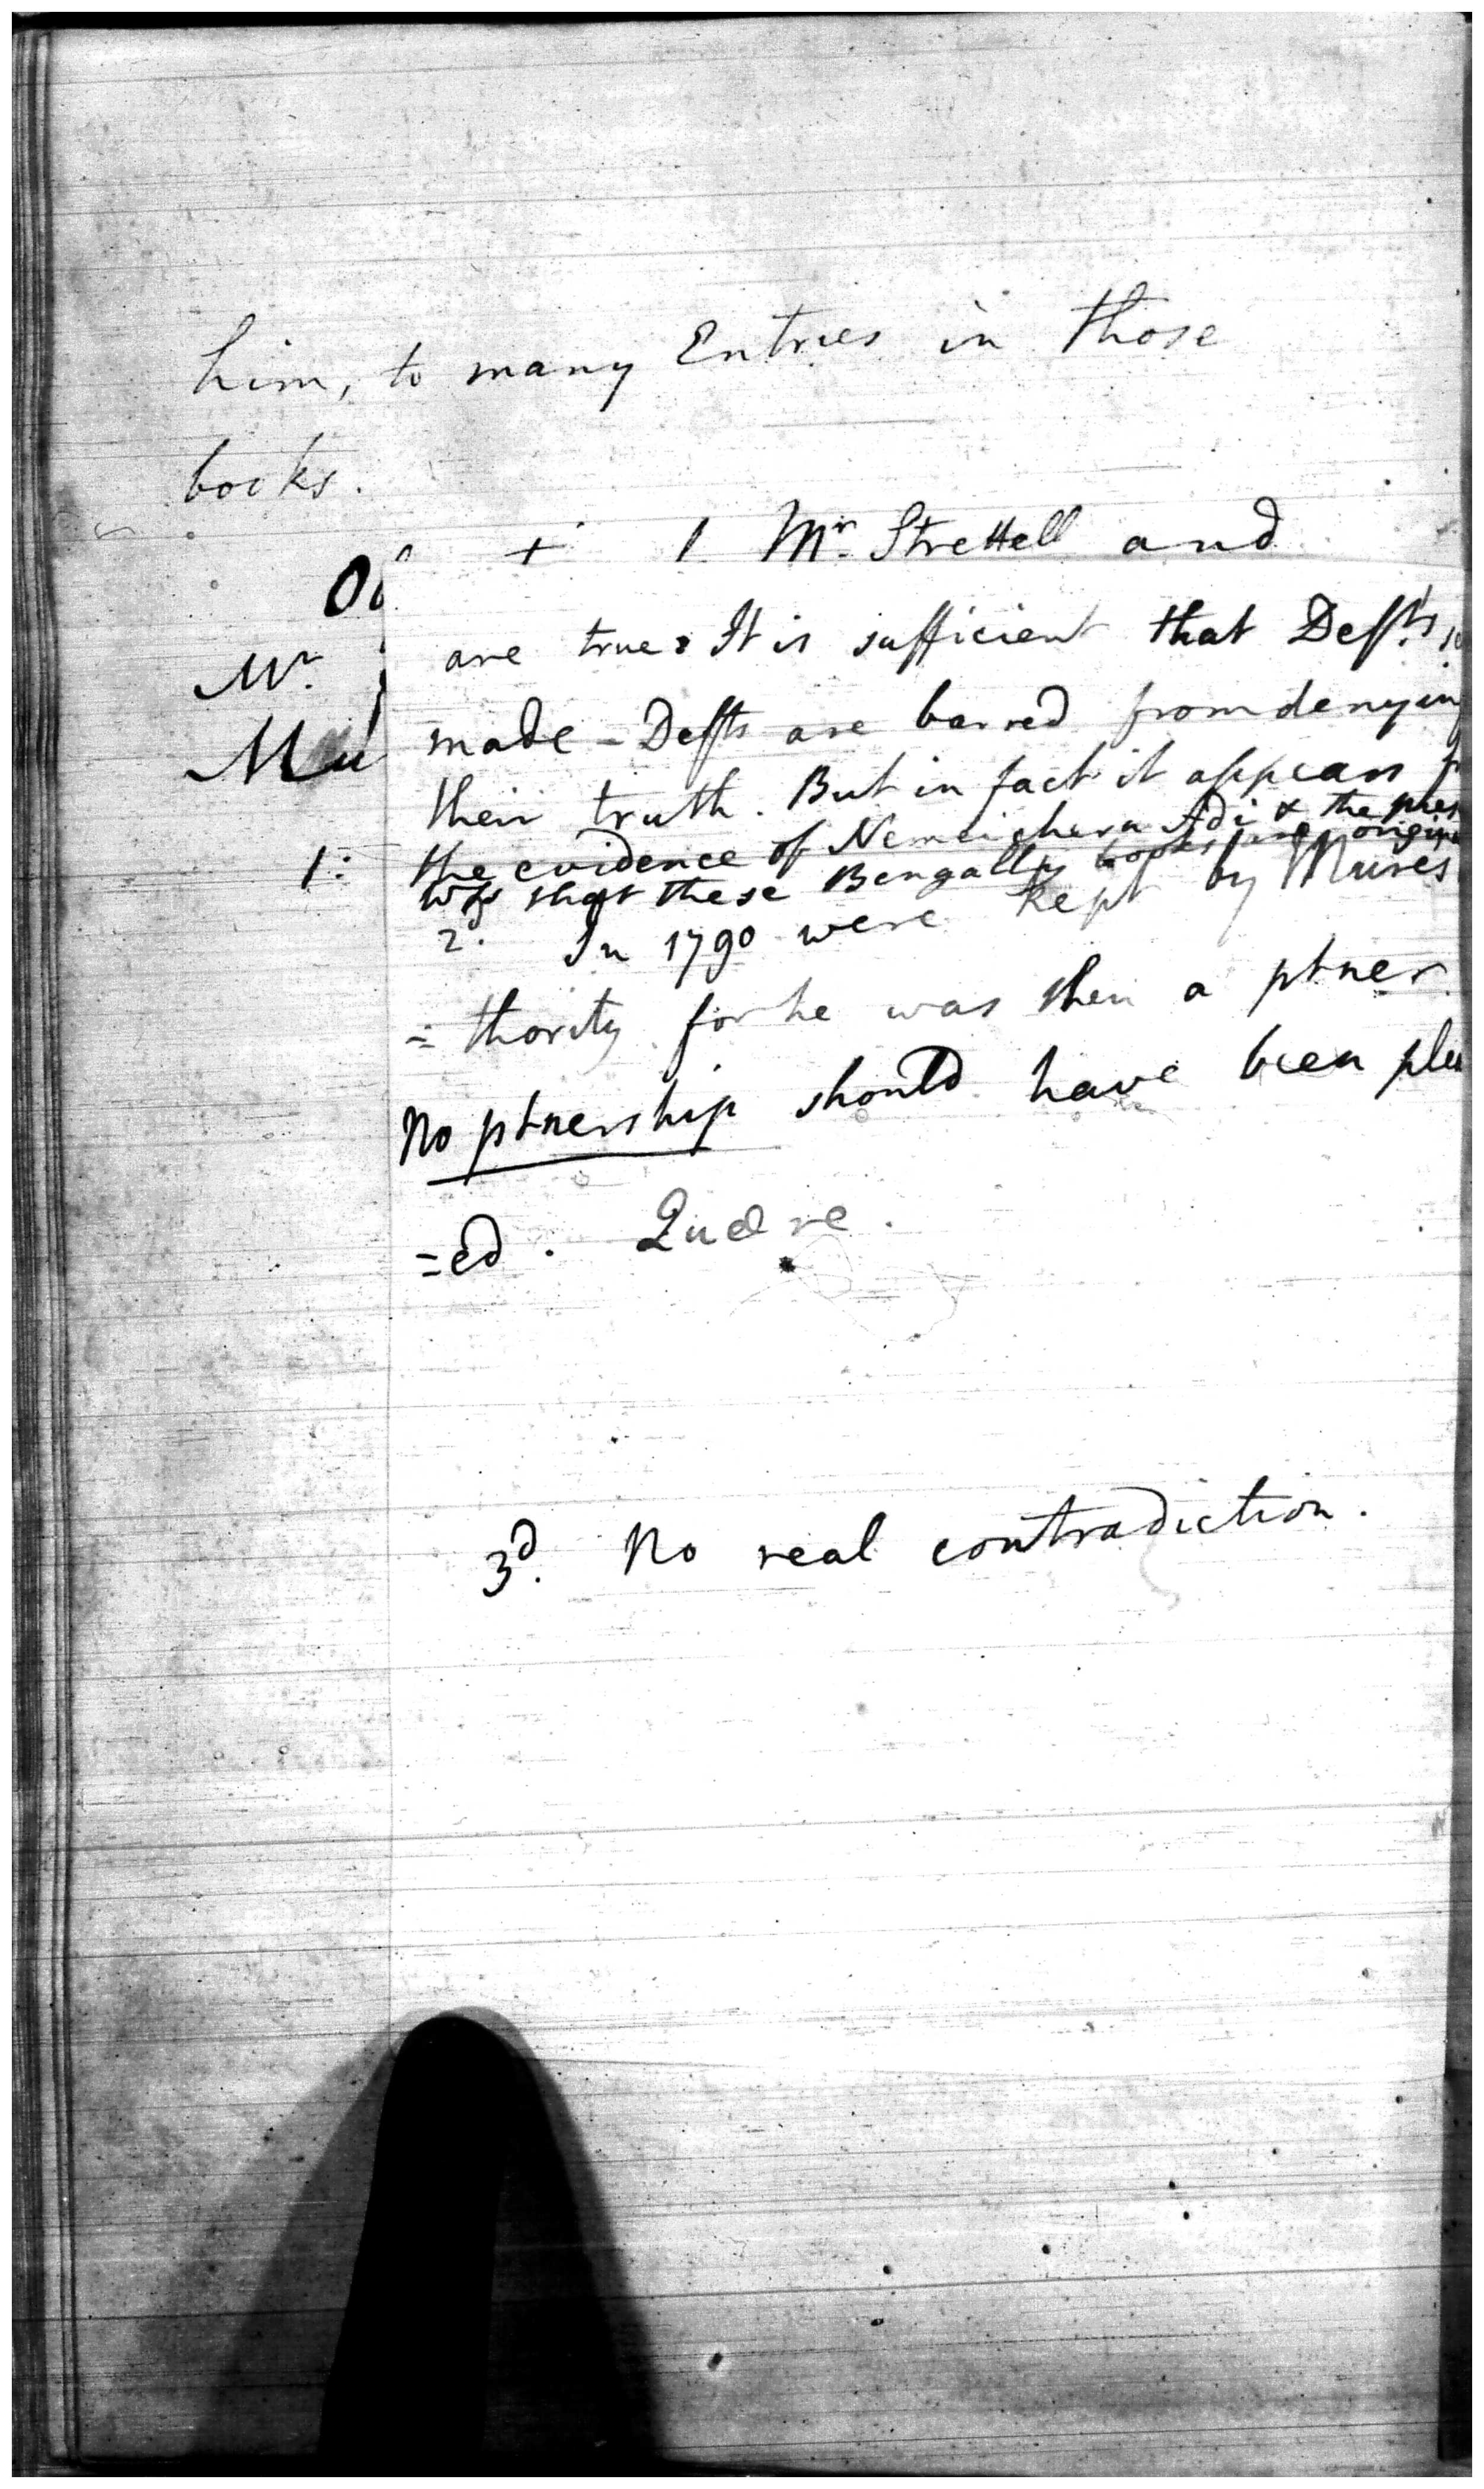 him, to many Entries in those
books.
+ 1 Mr. Strettell and
Mr.
are true. It is sufficient that Defts
made - Defts are barred from denying
their truth. But in fact it appears
1. the evidence of Nemeichern Adi & the
that these Bengally books
2d. In 1790 were kept by
=thority for he was then a ptner.
No ptnership should have been plea
=ed. Quære.
3d. No real contradiction.